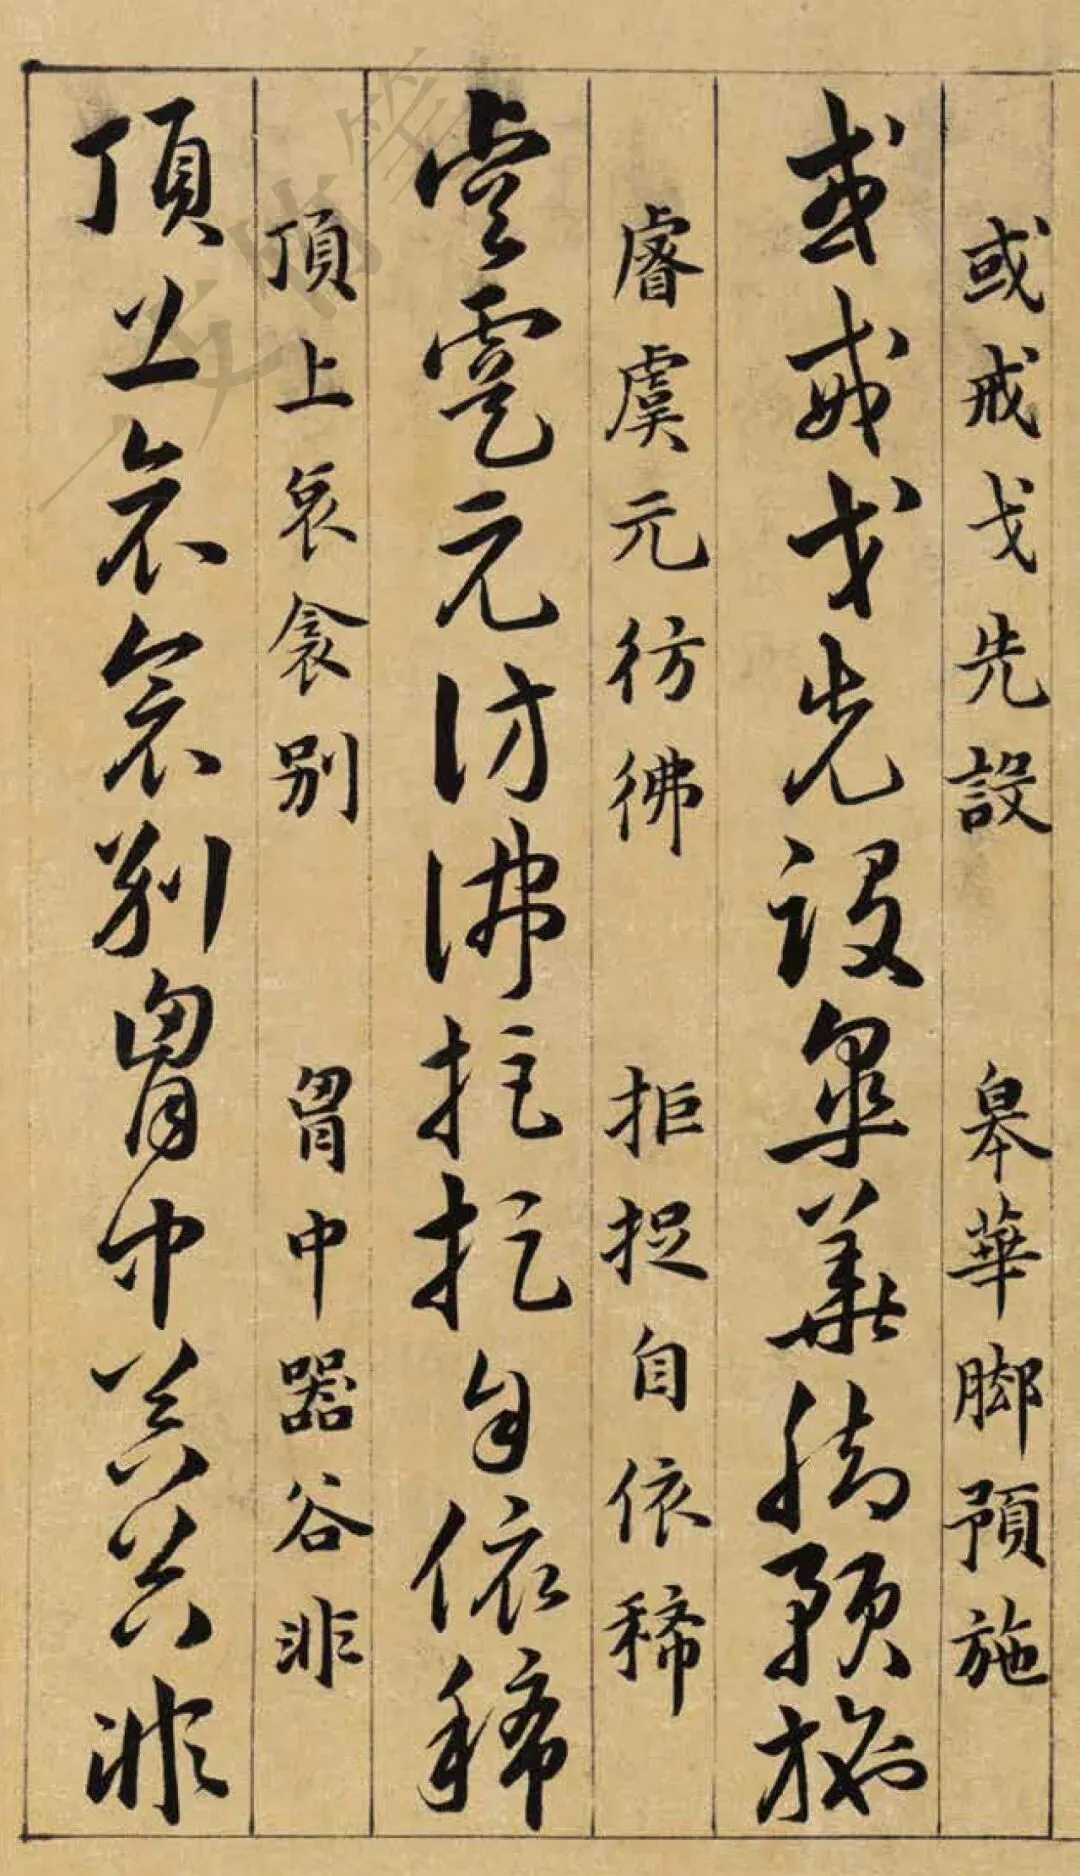 或戒戈先設 皋華脚預施
或戒戈先設皋華脚預施
睿虞元彷彿 拒捉自依稀
睿虞元彷彿拒捉自依稀
頂上哀衾別 胷中器谷非
頂上哀衾別胷中器谷非